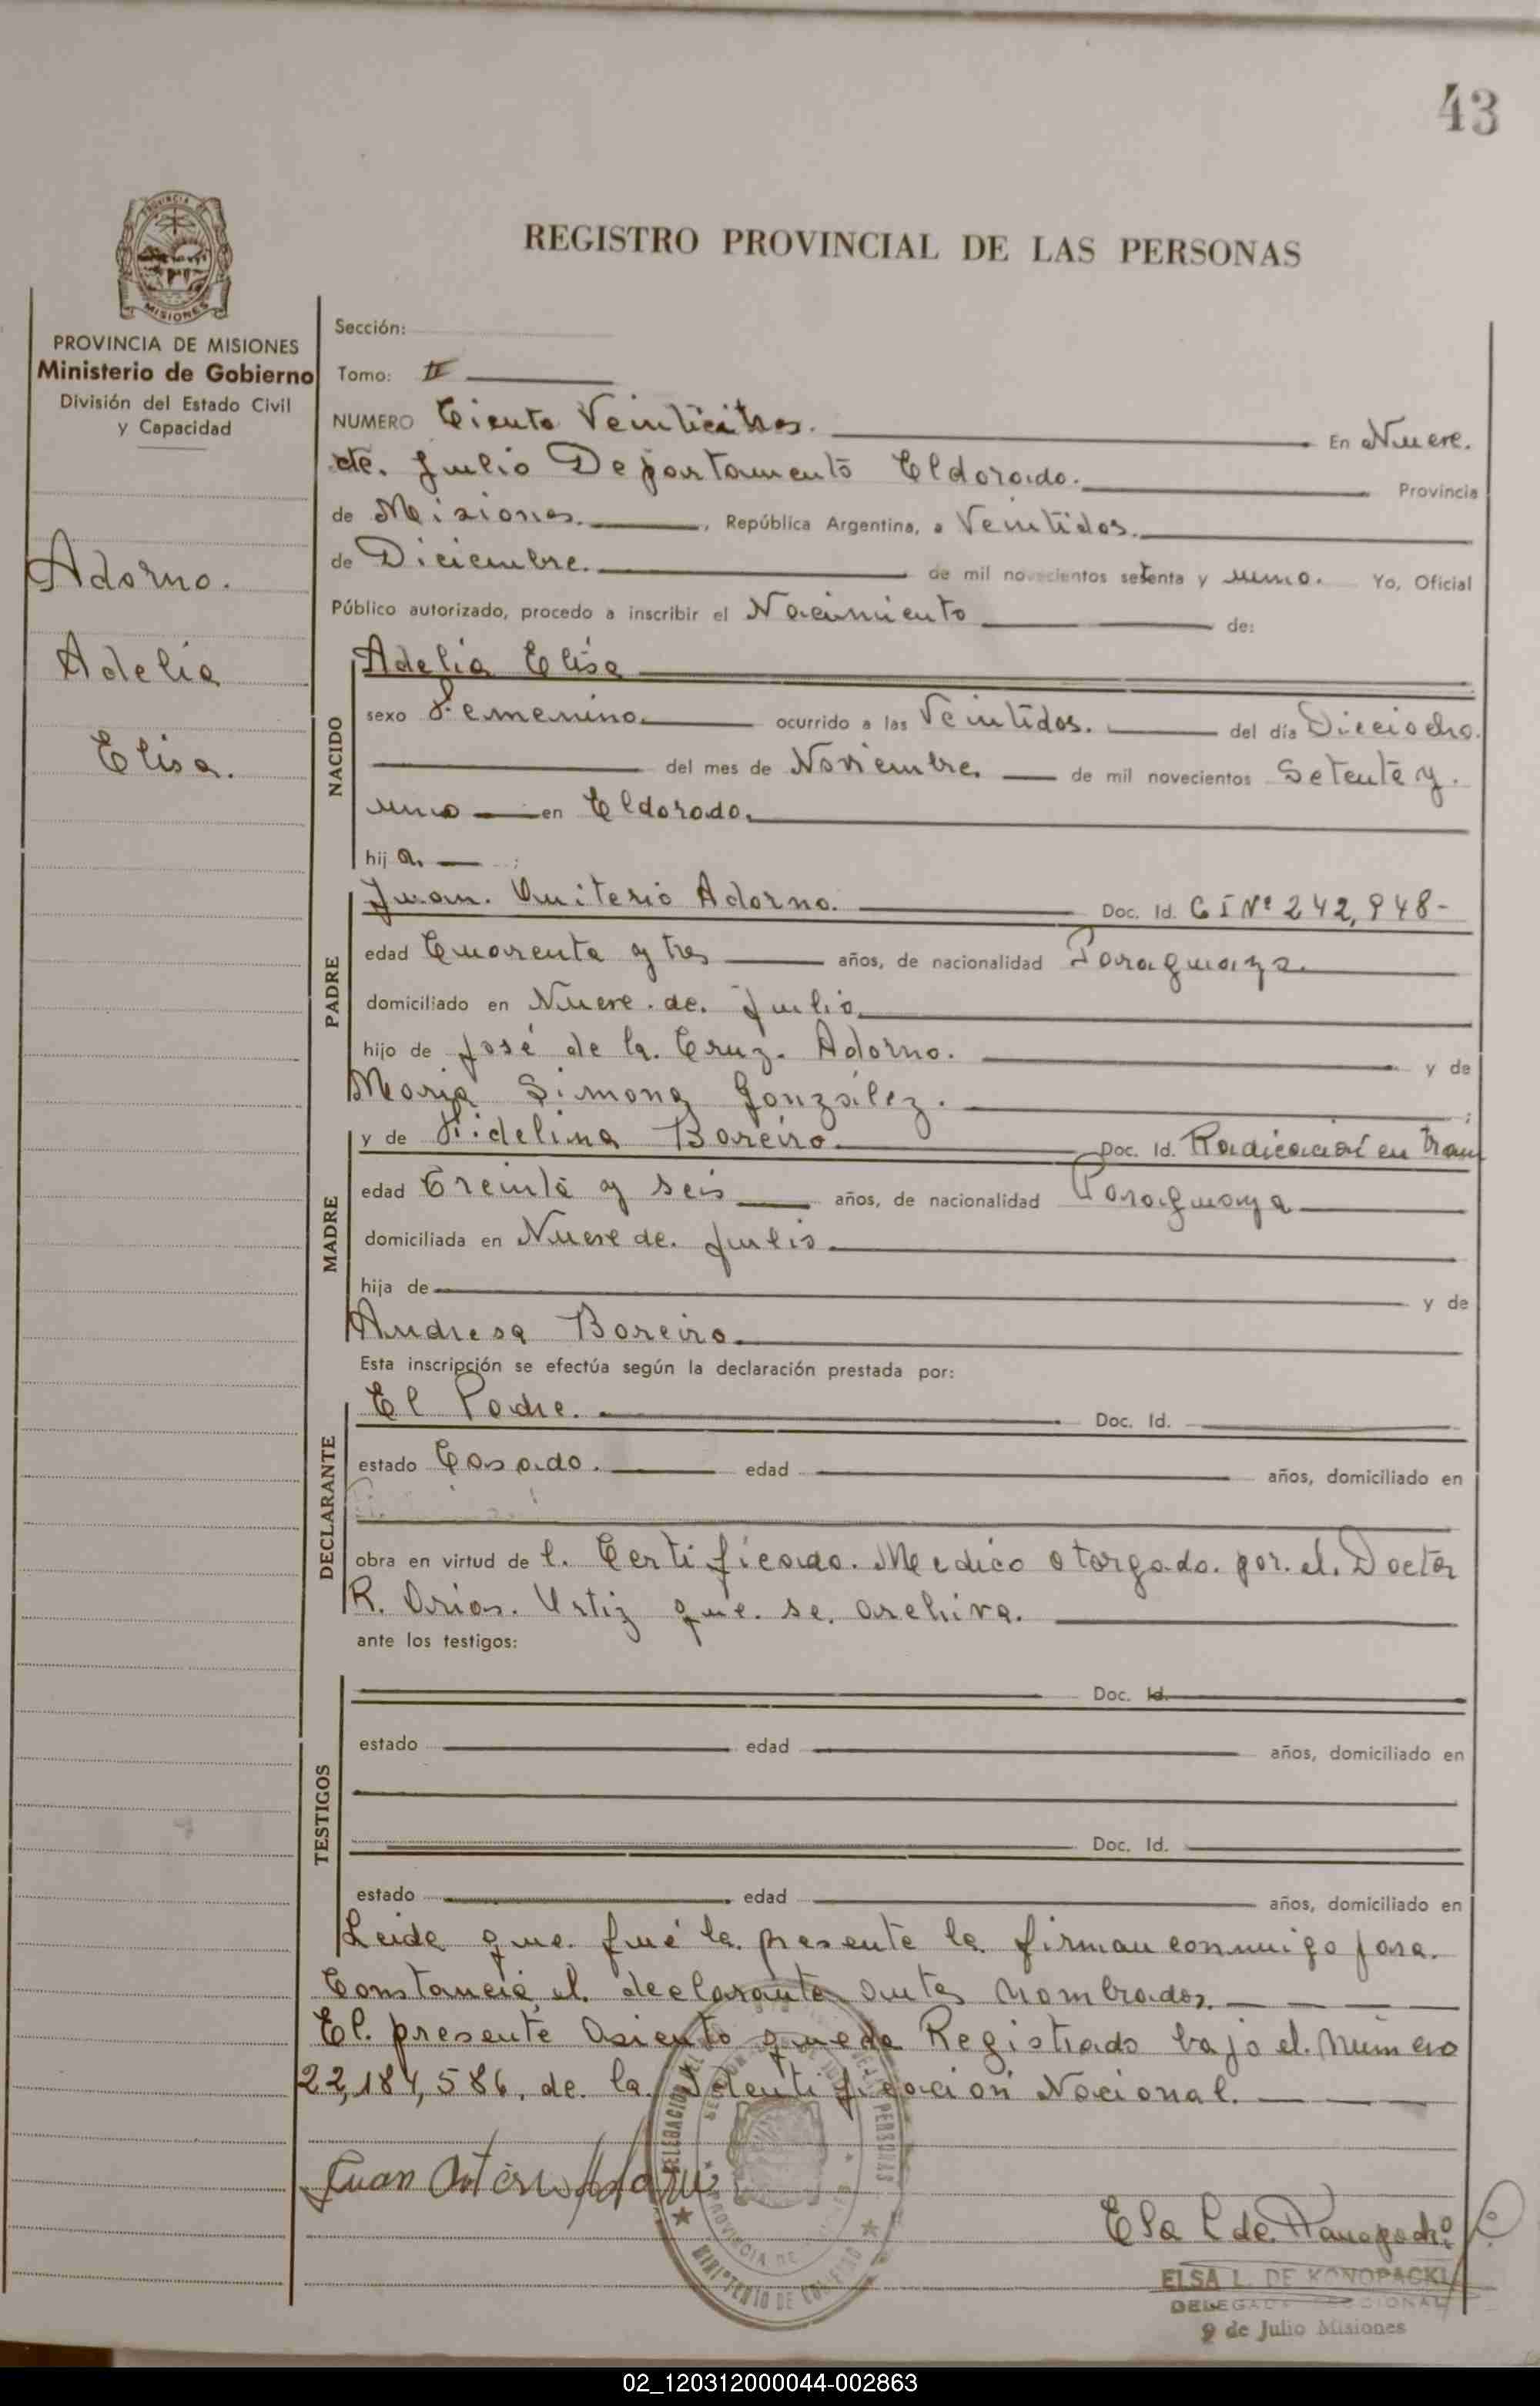 43
REGISTRO PROVINCIAL DE LAS PERSONAS
PROVINCIA DE MISIONES
Ministerio de Gobierno
División del Estado Civil
y Capacidad
Adorno.
Adelia
Elisa.
Sección:
Tomo: II
NUMERO Ciento En Nueve.
de. Julio Departamento Eldorado. Provincia
de Misiones. , República Argentina, a Veintidos.
de Diciembre. de mil novecientos setenta y uno. Yo, Oficial
Público autorizado, procedo a inscribir el Nacimiento de:
NACIDO
Adelia Elisa
sexo Femenino. ocurrido a las Veintidos. del día Dieciocho.
del mes de Noviembre. de mil novecientos Setenta y.
uno en Eldorado.
hij a. ;
PADRE
Juan. Adorno. Doc. Id. C I Nº 242,948-
edad Cuarenta y tres años, de nacionalidad Paraguaya.
domiciliado en Nueve. de. Julio.
hijo de José de la. Cruz. Adorno. y de
Maria Simona González. ;
MADRE
y de Fidelina Boreiro. Doc. Id. Radicación en tram
edad Treinta y seis años, de nacionalidad Paraguaya
domiciliada en Nueve de. Julio.
hija de y de
Andresa Boreiro.
Esta inscripción se efectúa según la declaración prestada por:
DECLARANTE
El Padre. Doc. Id.
estado Casado. edad años, domiciliado en
obra en virtud de l. Certificado. Medico otorgado. por. el. Doctor
R. Arias. Urtiz que. se. archiva.
ante los testigos:
TESTIGOS
Doc. Id.
estado edad años, domiciliado en
Doc. Id.
estado edad años, domiciliado en
Leida que. fué la. presente la firman conmigo para.
Constancia el. declarante antes nombrados.
El. presente Asiento queda Registrado bajo el. número
22,184,586. de. la. Identificación Nacional.
Juan Adorno
MINISTERIO DE GOBIERNO
PROVINCIA DE
Elsa L de
ELSA L. DE KONOPACKI
DELEGADA
9 de Julio Misiones
02_120312000044-002863